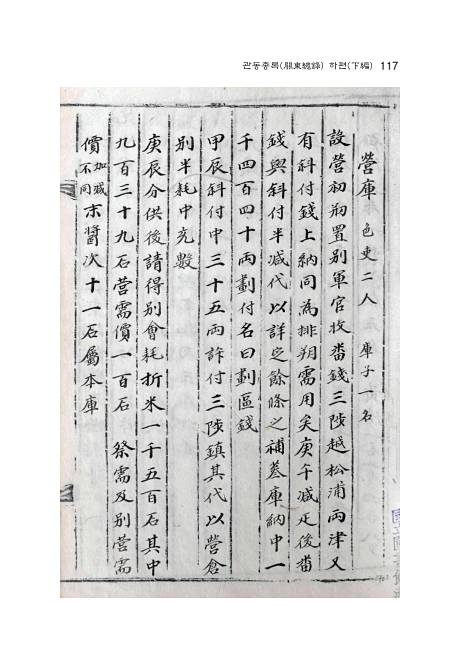 관동총록(關東總錄) 하편(下編) 117
營庫 色吏二人 庫子一名
設營初刱置別軍官收番錢三陟越松浦兩津又
有斜付錢上納同為排朔需用矣庚午减疋後番
錢與斜付半减代以詳定餘條之補墓庫納中一
千四百四十兩劃付名曰劃區錢
甲辰斜付中三十五兩許付三陟鎮其代以營倉
別半耗中充數
庚辰分供後請得別會耗折米一千五百石其中
九百三十九石營需價一百石 祭需及別營需
價加减不同末醬次十一石屬本庫